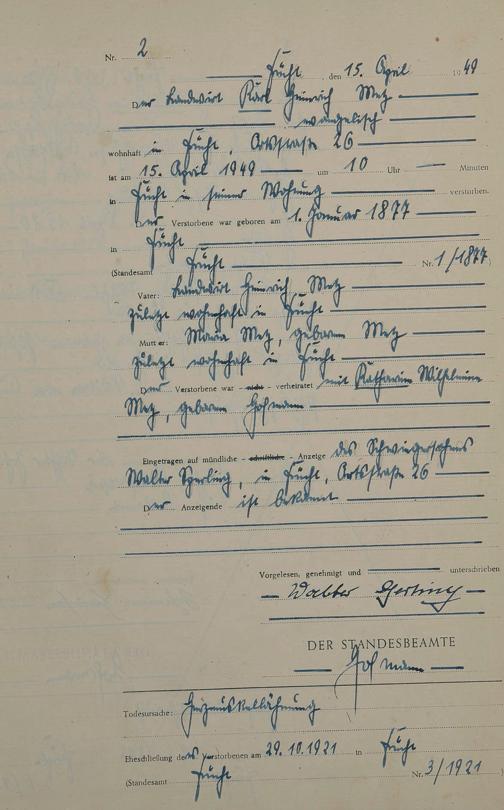 Nr. 2
Sücht, den 15. April 1949
Der Landwirt Karl Heinrich Metz
evangelisch
wohnhaft in Sücht, Ortstraße 26
ist am 15. April 1949 um 10 Uhr Minuten
in Sücht in seiner Wohnung verstorben.
Der Verstorbene war geboren am 1. Januar 1877
in Sücht
(Standesamt Sücht Nr. 1/1877)
Vater: Landwirt Heinrich Metz
zuletzt wohnhaft in Sücht
Mutter: Maria Metz, geborene Metz
zuletzt wohnhaft in Sücht
Der Verstorbene war - nicht - verheiratet mit Katharina Wilhelmine
Metz, geborene Hofmann
Eingetragen auf mündliche - schriftliche - Anzeige des Schwiegersohnes
Walter in Sücht, Ortstraße 26
Der Anzeigende ist bekannt
Vorgelesen, genehmigt und unterschrieben
Walter
DER STANDESBEAMTE
Hofmann
Todesursache: Herzmuskellähmung
Eheschließung des Verstorbenen am 29.10.1921 in Sücht
(Standesamt Sücht Nr. 3/1921)